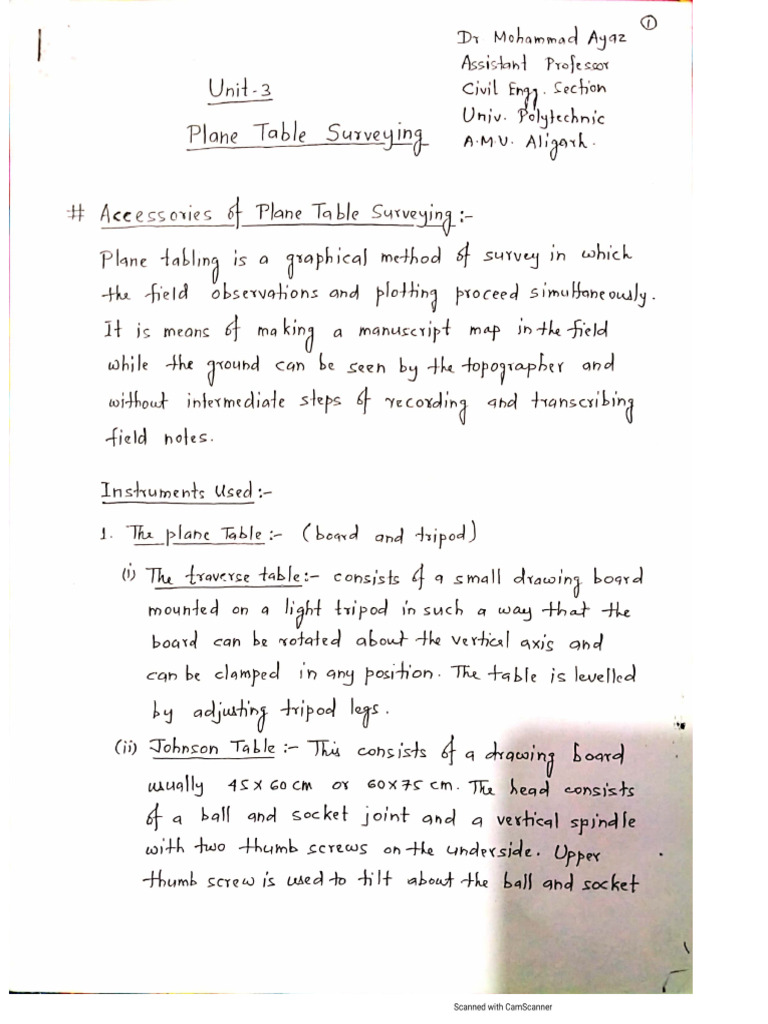 ①
Dr Mohammad Ayaz
Assistant Professor
Civil Engg. Section
Univ. Polytechnic
A.M.U. Aligarh.
Unit-3
Plane Table Surveying
# Accessories of Plane Table Surveying:-
Plane tabling is a graphical method of survey in which
the field observations and plotting proceed simultaneously.
It is means of making a manuscript map in the field
while the ground can be seen by the topographer and
without intermediate steps of recording and transcribing
field notes.
Instruments Used:-
1. The plane Table:- (board and tripod)
(i) The traverse table:- consists of a small drawing board
mounted on a light tripod in such a way that the
board can be rotated about the vertical axis and
can be clamped in any position. The table is levelled
by adjusting tripod legs.
(ii) Johnson Table:- This consists of a drawing board
usually 45 x 60 cm or 60 x 75 cm. The head consists
of a ball and socket joint and a vertical spindle
with two thumb screws on the underside. Upper
thumb screw is used to tilt about the ball and socket
Scanned with CamScanner